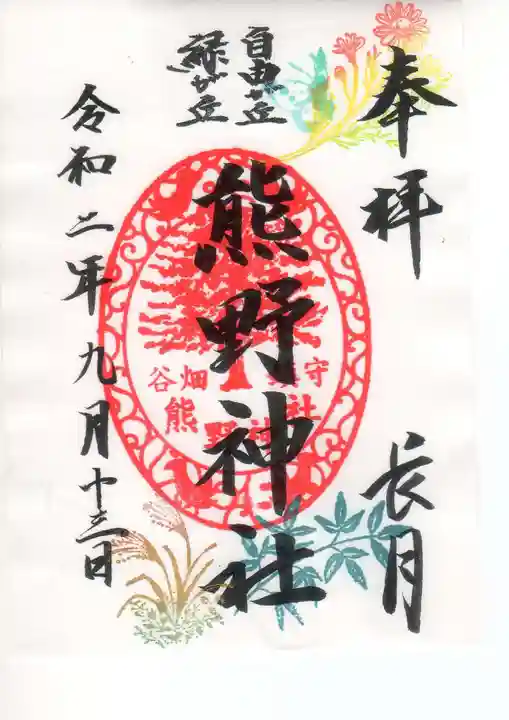 奉拝
長月
自由が丘
緑が丘
熊野神社
守
谷畑
熊野神社
令和二年九月十三日